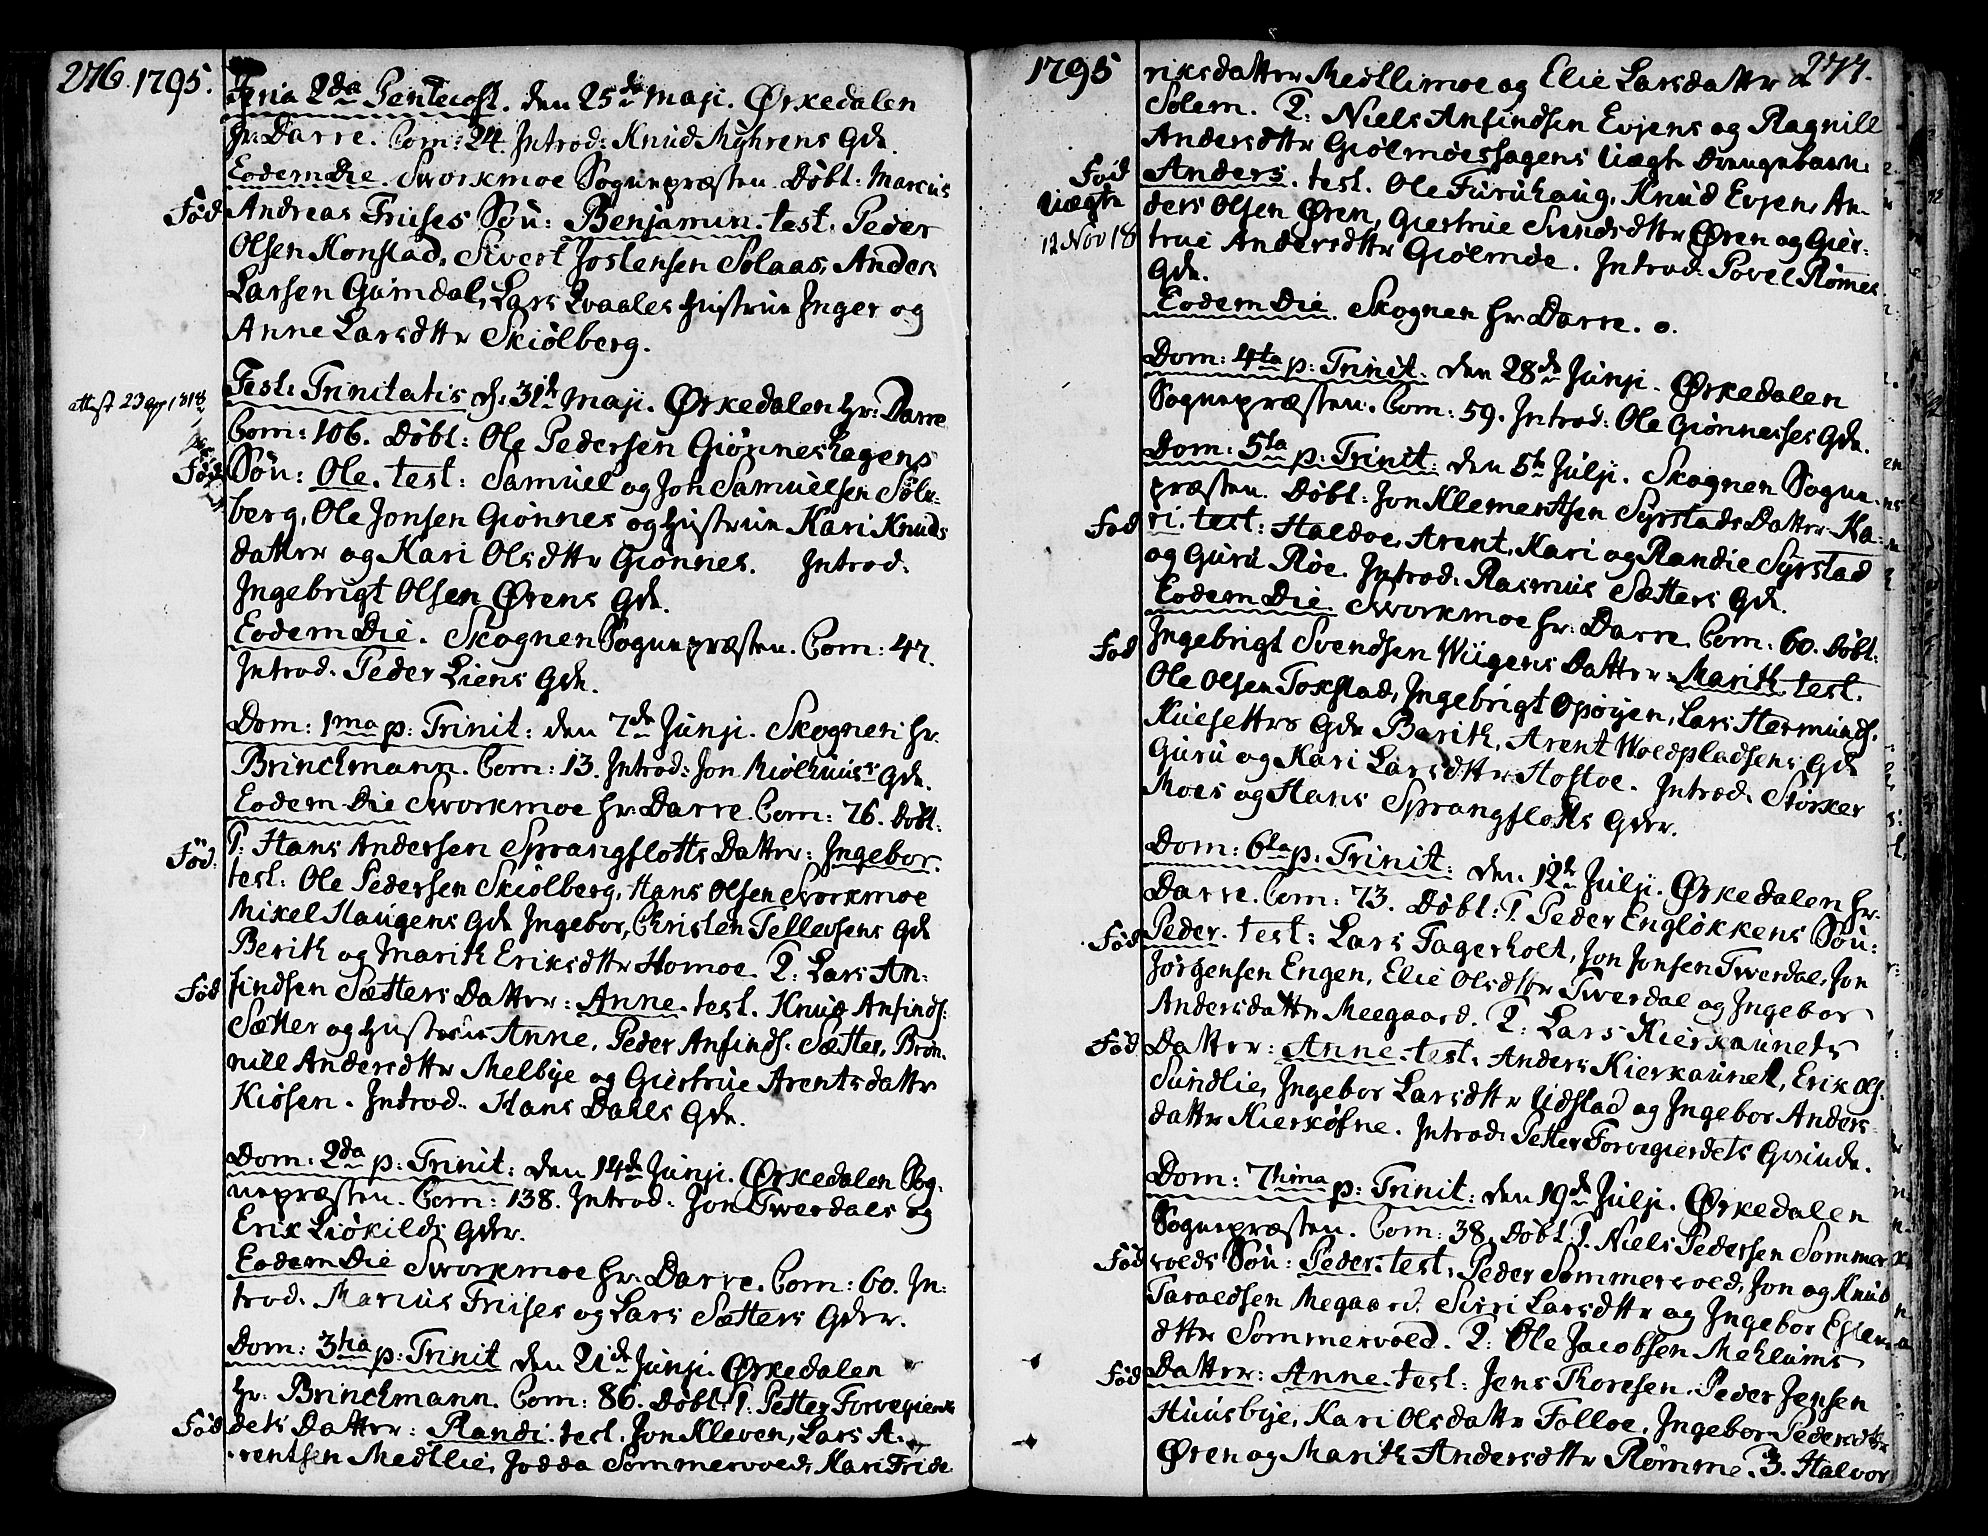 276. 1795.
Feria 2da Pentecost. den 25de Maji. Ørkedalen
hr: Darre. Com: 24. Introd: Knud Myhrens Gde.
Eodem Die Sworkmoe Sognepræsten. Døbt: Marcus
Fød Andreas Frises Søn: Benjamin. test. Peder
Olsen Konstad, Sivert Jostensen Solaas, Anders
Larsen Gumdal, Lars Qvaales Hustrue Inger og
Anne Larsdttr Skiølberg.
Fest: Trinitatis d. 31te Maji. Ørkedalen hr: Darre
Com: 106. Døbt: Ole Pedersen Giønneshagens
Fød Søn: Ole. test: Samuel og Jon Samuelsen Søle-
berg, Ole Jonsen Giønnes og Hustrue Kari Knuds
datter og Kari Olsdttr Giønnes. Introd:
Ingebrigt Olsen Ørens Gde.
Eodem Die. Skognen Sognepræsten. Com: 47.
Introd. Peder Liens Gde.
Dom: 1ma p: Trinit: den 7de Junji. Skognen hr.
Brinchmann. Com: 13. Introd: Jon Miølhuuss Gde.
Eodem Die Sworkmoe hr: Darre. Com: 76. Døbt:
Fød. 1. Hans Andersen Sprangflotts Datter: Ingebor.
test: Ole Pedersen Skiølberg, Hans Olsen Sworkmoe
Mikel Haugens Gde Ingebor, Christen Tellevsens Gde
Berith og Marith Eriksdttr Homoe. 2: Lars An-
Fød findsen Sætters Datter: Anne. test. Knud Anfinds:
Sætter og Hustrue Anne, Peder Anfinds. Sætter, Brøn-
nill Andersdttr Melbye og Giertrue Arentsdatter
Kiøsen. Introd. Hans Dahls Gde.
Dom. 2da p: Trinit: den 14de Junji. Ørkedalen Sog-
nepræsten. Com: 138. Introd. Jon Twerdals og
Erik Liøkilds Gder.
Eodem Die Sworkmoe hr. Darre. Com: 60. In-
trod. Marcus Frises og Lars Sætters Gder.
Dom: 3tia p: Trinit den 21de Junji. Ørkedalen
hr: Brinchmann. Com: 86. Døbt: 1: Petter Forvegier-
Fød dets Datter: Randi. test. Jon Kleven, Lars A-
rentsen Medlie, Jodda Sommervoed, Kari Fride-
1795 277.
riksdatter Medlimoe og Elie Larsdatter
Solem. 2: Niels Anfindsen Evjens og Ragnill
Andersdttr Giølmoeshagens Uægte Drengebarn
Fød Uægte 12 Nov 18
Anders. test. Ole Furuhaug, Knud Evjen, An-
ders Olsen Øren, Giertrue Svendsdttr Øren og Gier-
true Andersdttr Giølmoe. Introd. Povel Rømmes
Gde.
Eodem Die. Skognen hr Darre. o.
Dom: 4ta p: Trinit. den 28de Junji. Ørkedalen
Sognepræsten. Com: 59. Introd: Ole Giønnesses Gde.
Dom: 5ta p: Trinit: den 5te Julji. Skognen Sogne-
præsten. Døbt: Jon Klementsen Syrstads Datter Ka-
Fød ri. test: Haldoe, Arent, Kari og Randie Syrstad
og Guru Røe. Introd. Rasmus Sætters Gde.
Eodem Die. Sworkmoe hr: Darre. Com: 60. Døbt:
Fød Ingebrigt Svendsen Wiigens Datter: Marith. test.
Ole Olsen Torstad, Ingebrigt Opøyen, Lars Hermunds.
Kuesetters Gde Barith, Arent Woldpladsens Gde
Guru og Kari Larsdttr Hostoe. Introd. Størker
Moes og Hans Sprangflotts Gder.
Dom: 6ta p. Trinit: den 12te Julji. Ørkedalen hr.
Darre. Com: 73. Døbt: 1. Peder Engløkkens Søn:
Fød Peder. test: Lars Fagerholt, Jon Jonsen Twerdal, Jon
Jørgensen Engen, Elie Olsdttr Twerdal og Ingebor
Andersdatter Meegaard. 2: Lars Kierkaunets
Fød Datter: Anne. test. Anders Kierkaunet, Erik Ols.
Sundlie, Ingebor Larsdttr Udstad og Ingebor Anders-
datter Kierkøfne. Introd. Petter Forvegierdets Qvinde.
Dom: 7tima p: Trinit: den 19de Julji. Ørkedalen
Sognepræsten. Com: 38. Døbt. 1. Niels Pedersen Sommer-
Fød voeds Søn: Peder. test. Peder Sommervoed, Jon og Knud
Taraldsen Megaard. Sirri Larsdttr og Ingebor Esten-
dttr Sommervoed. 2: Ole Jacobsen Mehlums
Fød Datter: Anne. test: Jens Thoresen, Peder Jensen
Huusbye, Kari Olsdatter Folloe, Ingebor Pedersdttr
Øren og Marith Andersdttr Rømme. 3. Halvor